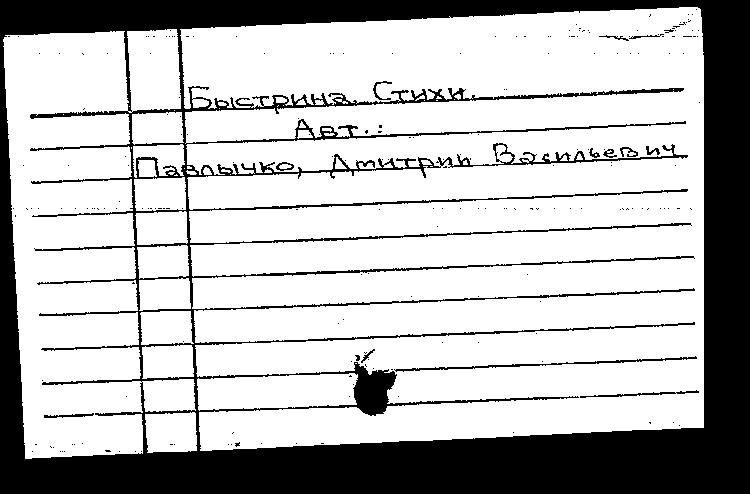 Быстрина. Стихи.
Авт.:
Павлычко, Дмитрий Васильевич